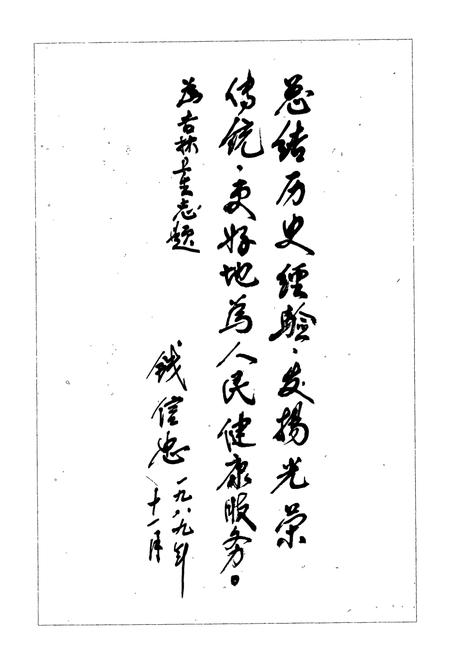 总结历史经验、发扬光荣
传统、更好地为人民健康服务。
为吉林省志题
钱信忠
一九八九年
十一月